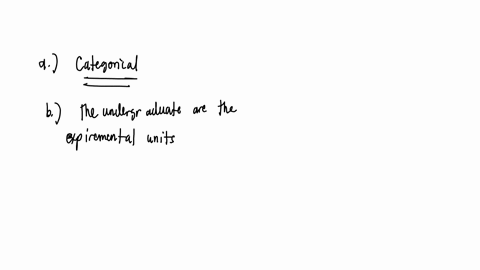 a.) Categorical
b.) The undergraduate are the
expiremental units